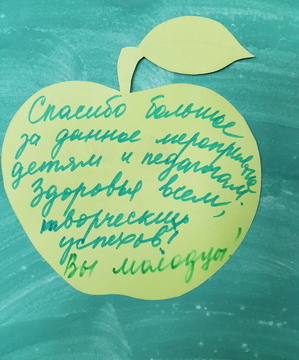 Спасибо большое
за данное мероприятие
детям и педагогам.
Здоровья всем,
творческих
успехов!
Вы молодцы!